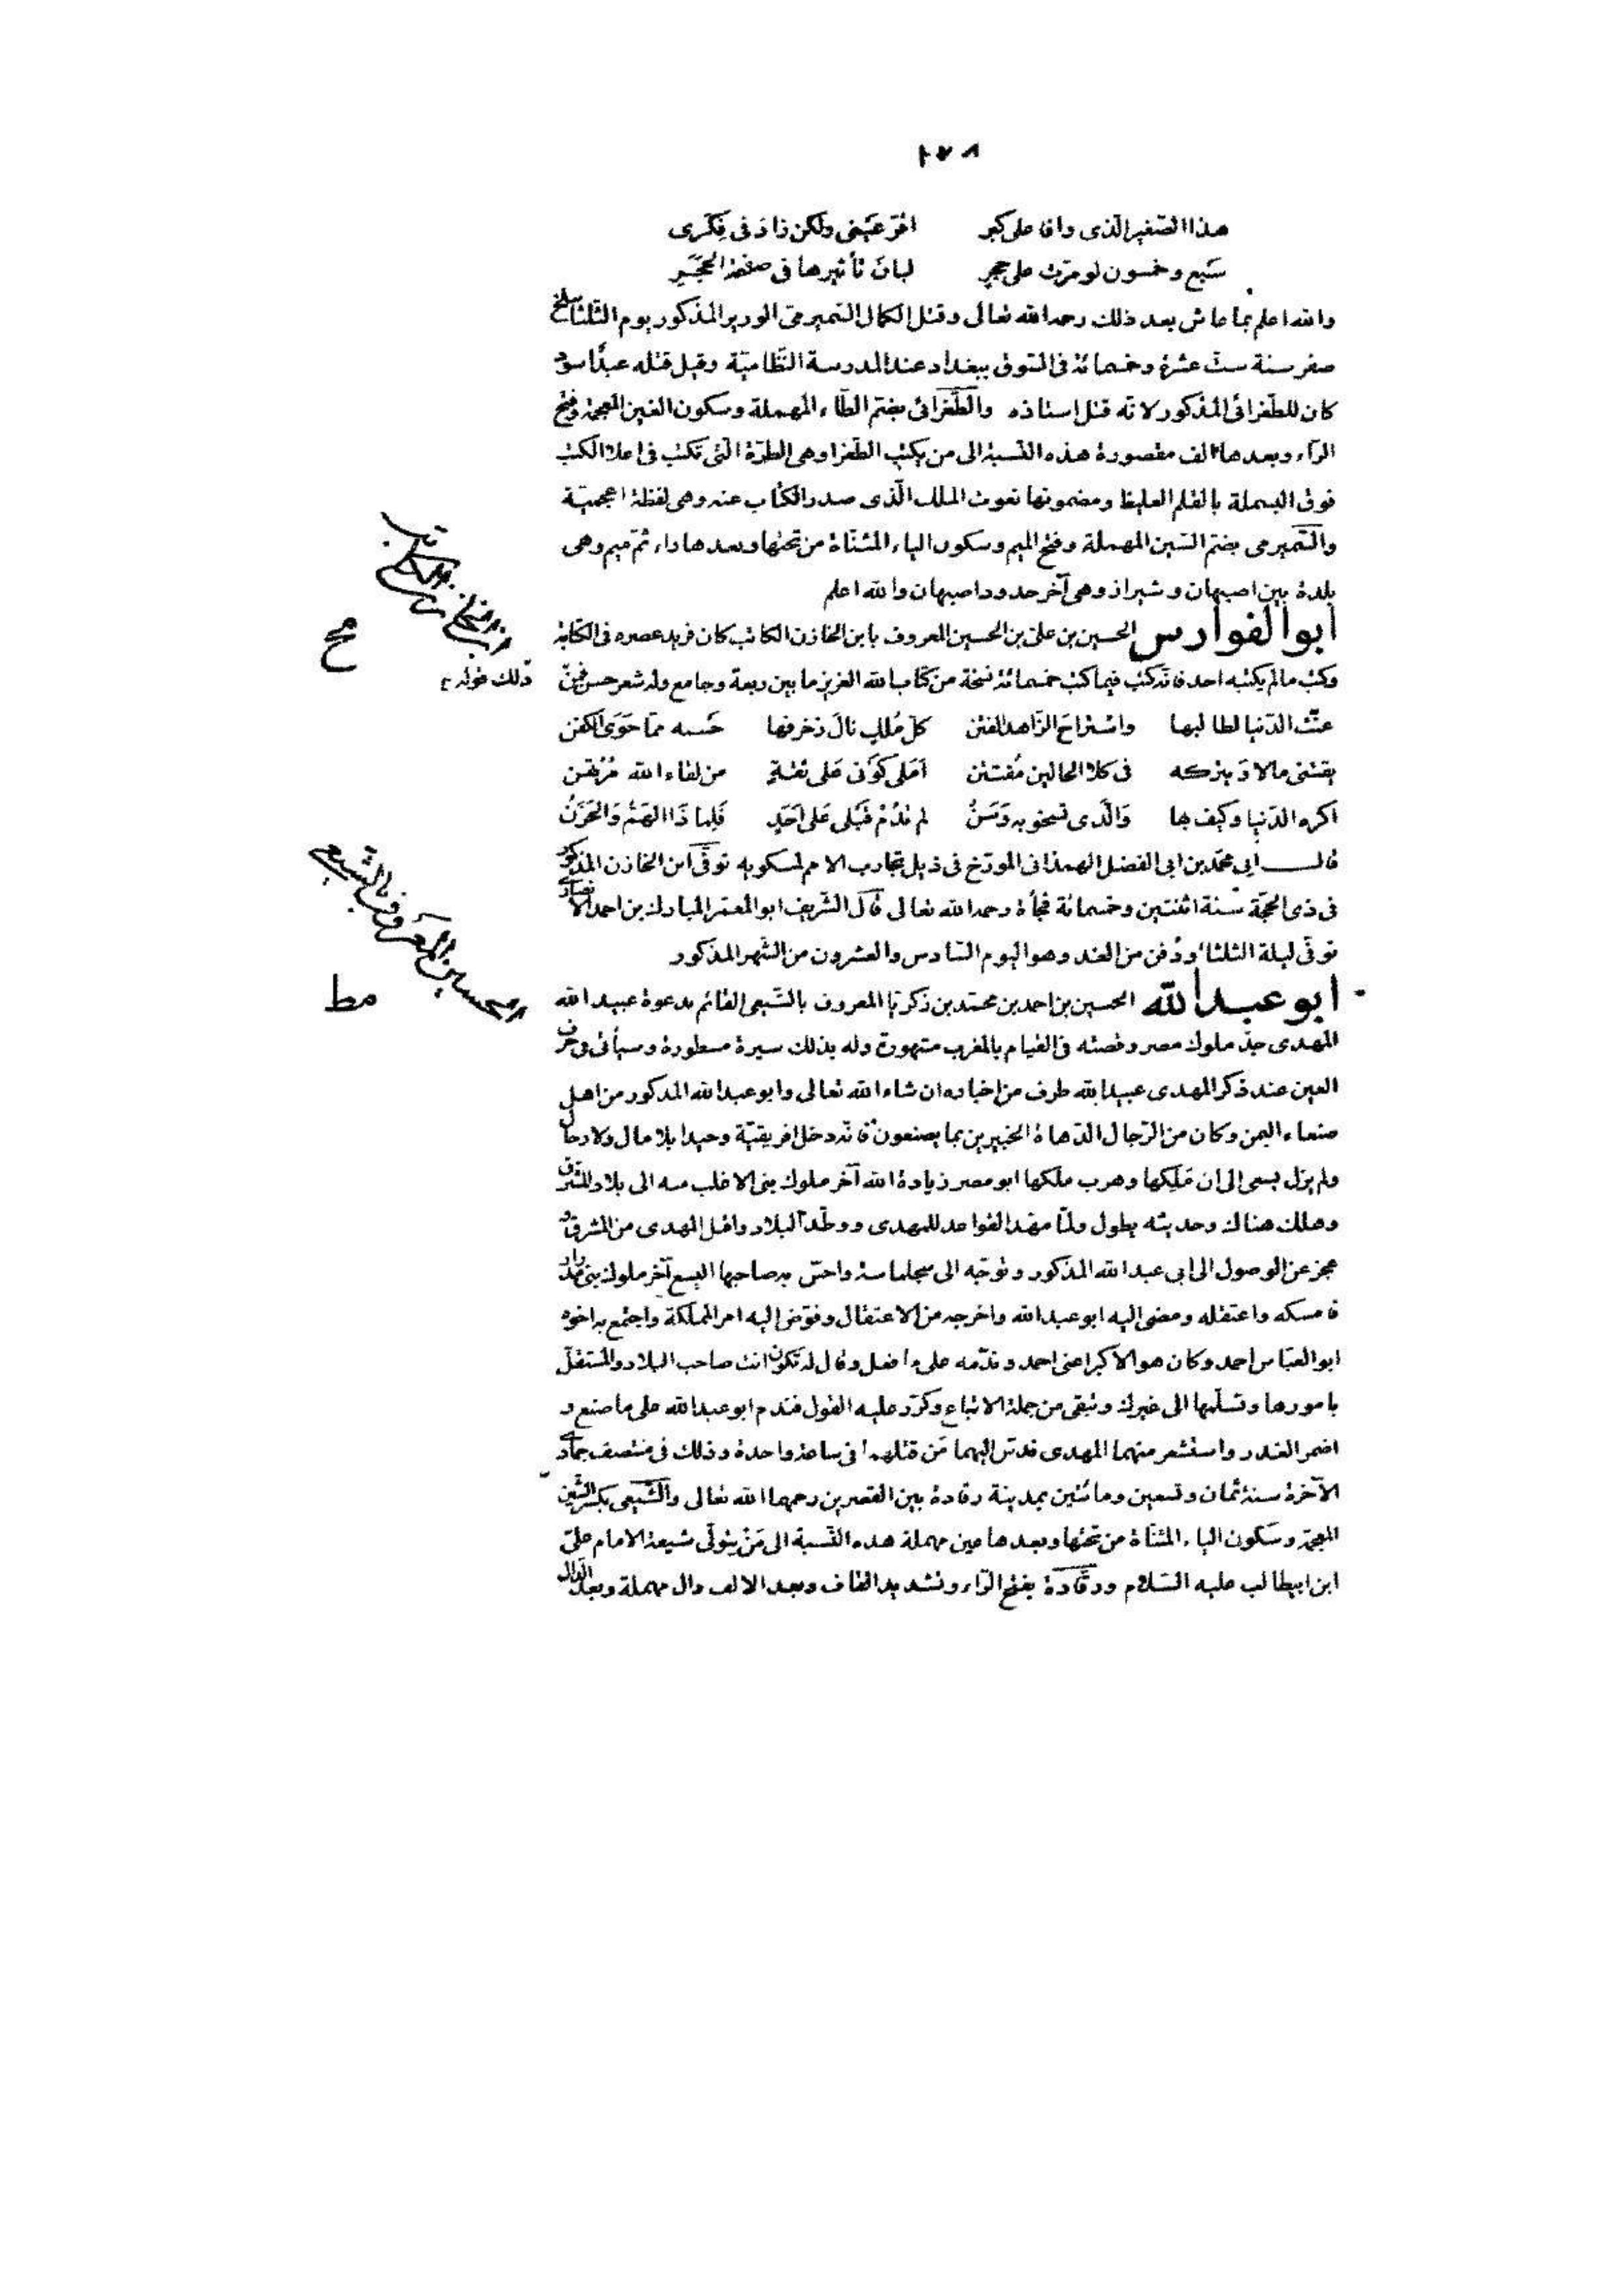 ١٧٨
هذا الصّغير الّذى وافا على كبر اقرّ عَيْنى ولكن زادَ فى فِكَرى
سَبع وخمسون لو مرّت على حجرٍ لبانَ تأثيرها فى صفحة الحجَرِ
والله اعلم بما عاش بعد ذلك رحمه الله تعالى وقتل الكمال السّميرمىّ الوزير المذكور يوم الثلثا سلخ
صفر سنة ستّ عشرة وخمسمائة فى السّوق ببغداد عند المدرسة النّظاميّة وقيل قتله عبدٌ اسود
كان للطّغرائى المذكور لانّه قتل استاذه والطّغرائى بضمّ الطّاء المهملة وسكون الغين المعجمة وفتح
الرّاء وبعدها الف مقصورة هذه النّسبة الى من يكتب الطّغرا وهى الطرّة الّتى تكتب فى اعلا الكتب
فوق البسملة بالقلم الغليظ ومضمونها نعوت الملك الّذى صدر الكتاب عنه وهى لفظة اعجميّة
والسّميرمى بضمّ السّين المهملة وفتح الميم وسكون الياء المثنّاة من تحتها وبعدها راء ثمّ ميم وهى
بلدة بين اصبهان وشيراز وهى آخر حدود اصبهان والله اعلم
ابو الفوارس الحسين بن علىّ بن الحسين المعروف بابن الخازن الكاتب كان فريد عصره فى الكتابة
وكتب ما لم يكتبه احد فانّه كتب فيما كتب خمسمائة نسخة من كتاب الله العزيز ما بين ربعة وجامع وله شعر حسن فمن
ذلك قوله
عنّت الدّنيا لطالبها واستراحَ الزّاهد الفطن كلّ مَلكٍ نالَ زخرفها حَسبه ممّا حَوَى الكفن
يقتنى مالا وَيتركه فى كلا الحالين مُفتتن اَملى كَونى عَلى ثقةٍ من لقاء الله مُرْتهن
اكره الدّنيا وكيف بها وَالّذى تسخو به وَسَنُ لم تدُمْ قَبْلى عَلى اَحَدٍ فَلِما ذَا الهَمُّ وَالحَزَنُ
قال ابى محمّد بن ابى الفضل الهمذانى المورّخ فى ذيل تجارب الامم لمسكويه توفّى ابن الخازن المذكور
فى ذى الحجّة سنة اثنتين وخمسمائة فجأة رحمه الله تعالى قال الشّريف ابو المعمّر المبارك بن احمد الانصارى
توفّى ليلة الثلثا ودُفن من الغد وهو اليوم السّادس والعشرون من الشّهر المذكور
ابو عبد الله الحسين بن احمد بن محمّد بن زكريّا المعروف بالشّيعى القائم بدعوة عبيد الله
المهدى جدّ ملوك مصر وقصّته فى القيام بالمغرب مشهورة وله بذلك سيرة مسطورة وسيأتى فى حرف
العين عند ذكر المهدى عبيد الله طرف من اخباره ان شاء الله تعالى وابو عبد الله المذكور من اهل
صنعاء اليمن وكان من الرّجال الدّهاة الخبيرين بما يصنعون فانّه دخل افريقيّة وحيدا بلا مال ولا رجال
ولم يزل يسعى الى ان مَلَكها وهرب ملكها ابو مضر زيادة الله آخر ملوك بنى الاغلب منه الى بلاد المشرق
وهلك هناك وحديثه يطول ولمّا مهّد القواعد للمهدى ووطّد البلاد واقبل المهدى من المشرق و
عجز عن الوصول الى ابى عبد الله المذكور وتوجّه الى سجلماسة واحسّ به صاحبها اليسع آخر ملوك بنى مدرار
فامسكه واعتقله ومضى اليه ابو عبد الله واخرجه من الاعتقال وفوّض اليه امر المملكة واجتمع به اخوه
ابو العبّاس احمد وكان هو الاكبر اعنى احمد وندّمه على ما فعل وقال له تكون انت صاحب البلاد والمستقلّ
بامورها وتسلّمها الى غيرك وتبقى من جملة الاتباع وكرّر عليه القول فندم ابو عبد الله على ما صنع و
اضمر الغدر واستشعر منهما المهدى فدسّ اليهما مَن قتلهما فى ساعة واحدة وذلك فى منتصف جمادى
الآخرة سنة ثمان وتسعين ومائتين بمدينة رقادة بين القصرين رحمهما الله تعالى والشّيعى بكسر الشّين
المعجمة وسكون الياء المثنّاة من تحتها وبعدها عين مهملة هذه النّسبة الى مَنْ يتولّى شيعة الامام علىّ
ابن ابيطالب عليه السّلام ورقّادة بفتح الرّاء وتشديد القاف وبعد الالف دال مهملة وبعد الدال
ابن الخازن الكاتب
مح
الحسين المعروف بالشيعى
مط